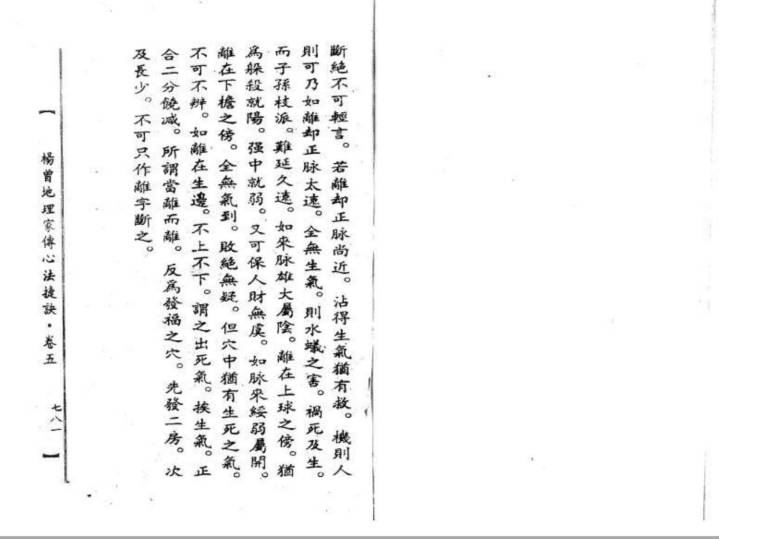 斷絕不可輕言。若離却正脉尚近。沾得生氣猶有救。機則人
則可乃如離却正脉太遠。全無生氣。則水蟻之害。禍死及生。
而子孫枝派。難延久遠。如來脉雄大屬陰。離在上球之傍。猶
為躲殺就陽。强中就弱。又可保人財無虞。如脉來綏弱屬開。
離在下檐之傍。全無氣到。敗絕無疑。但穴中猶有生死之氣。
不可不辨。如離在生邊。不上不下。謂之出死氣。挨生氣。正
合二分饒减。所謂當離而離。反為發福之穴。先發二房。次
及長少。不可只作離字斷之。
【 楊曾地理家傳心法捷訣·卷五 七八一 】